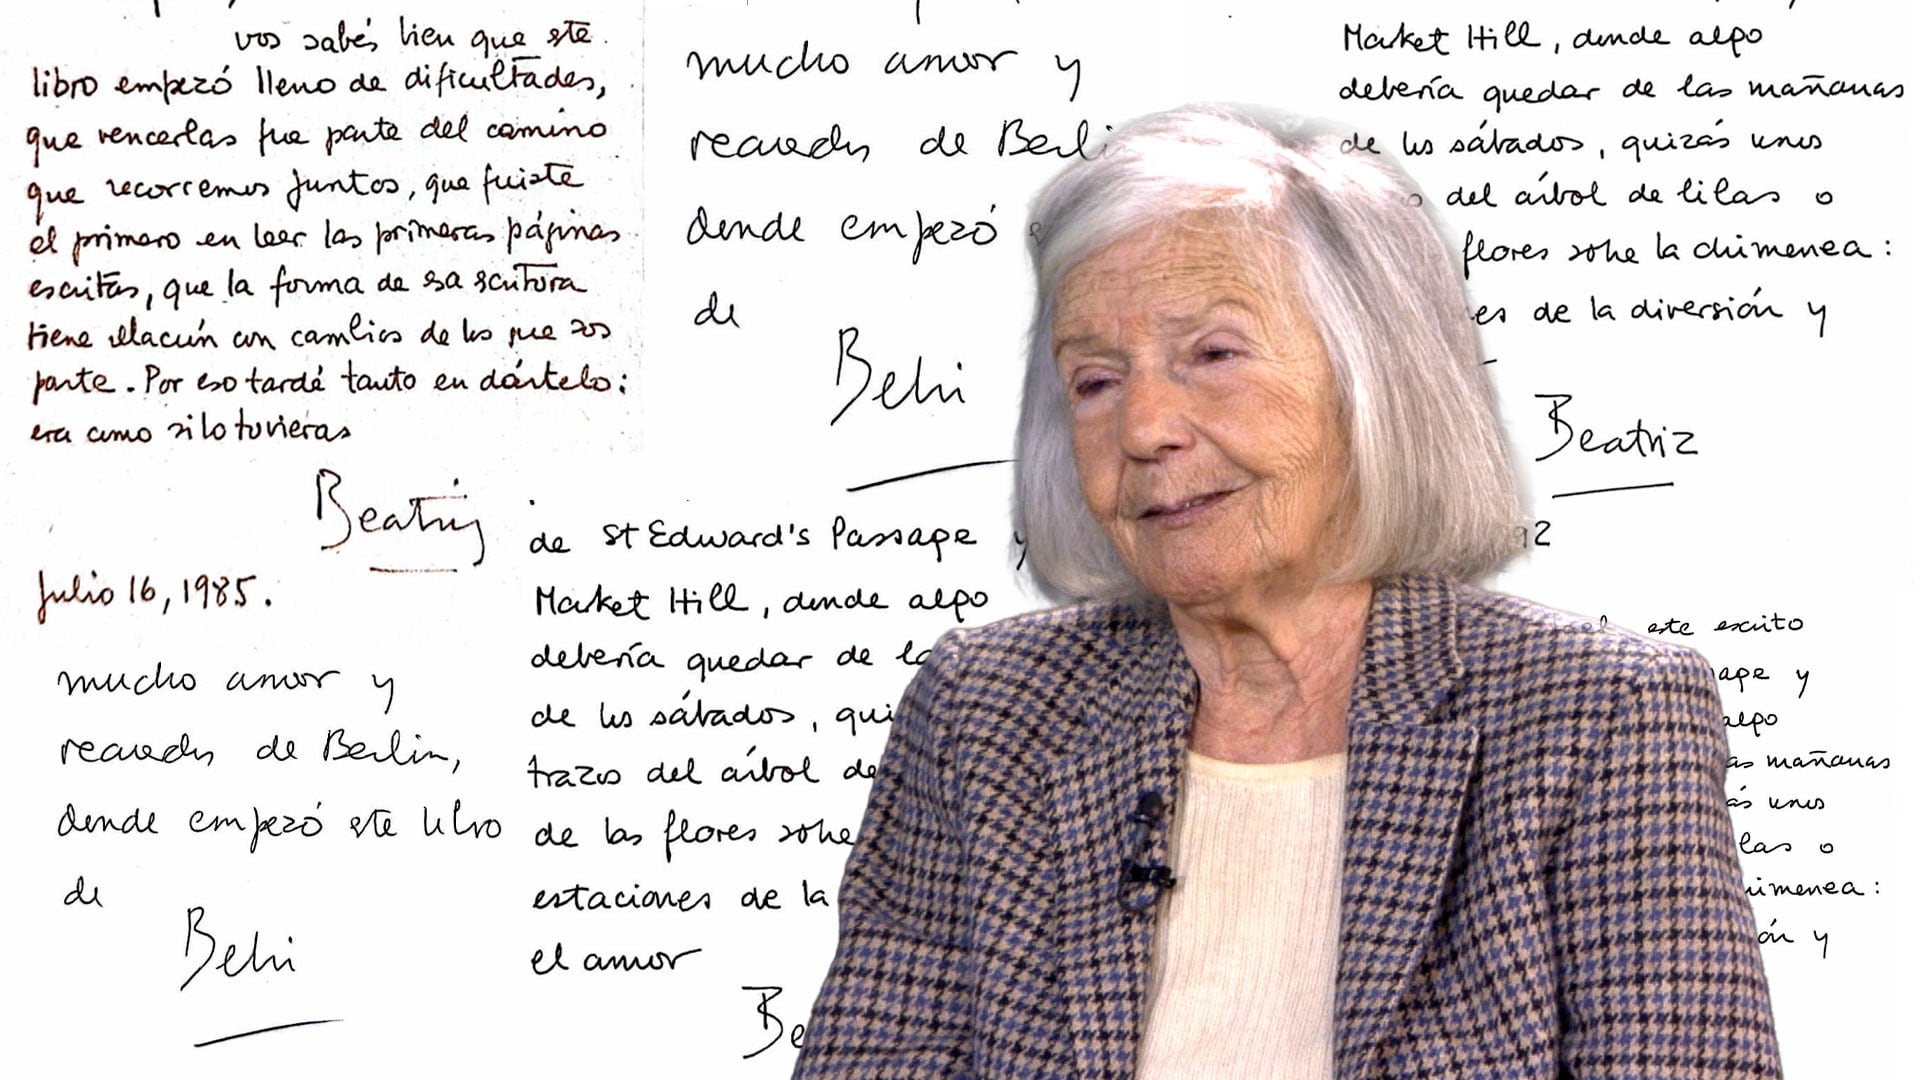 vos sabés bien que este
libro empezó lleno de dificultades,
que vencerlas fue parte del camino
que recorremos juntos, que fuiste
el primero en leer las primeras páginas
escritas, que la forma de esa escritura
tiene relación con cambios de los que sos
parte. Por eso tardé tanto en dártelo:
era como si lo tuvieras
Beatriz
Julio 16, 1985.
mucho amor y
recuerdos de Berlin,
donde empezó este libro
de
Behi
mucho amor y
recuerdos de Berli
donde empezó
de
Behi
de St Edward's Passage y
Market Hill, donde algo
debería quedar de la
de los sábados, qui
trazos del árbol de
de las flores sobre
estaciones de la
el amor
Be
Market Hill, donde algo
debería quedar de las mañanas
de los sábados, quizás unos
del árbol de lilas o
flores sobre la chimenea:
es de la diversión y
Beatriz
92
este escrito
age y
algo
as mañanas
ás unos
las o
imenea:
ón y